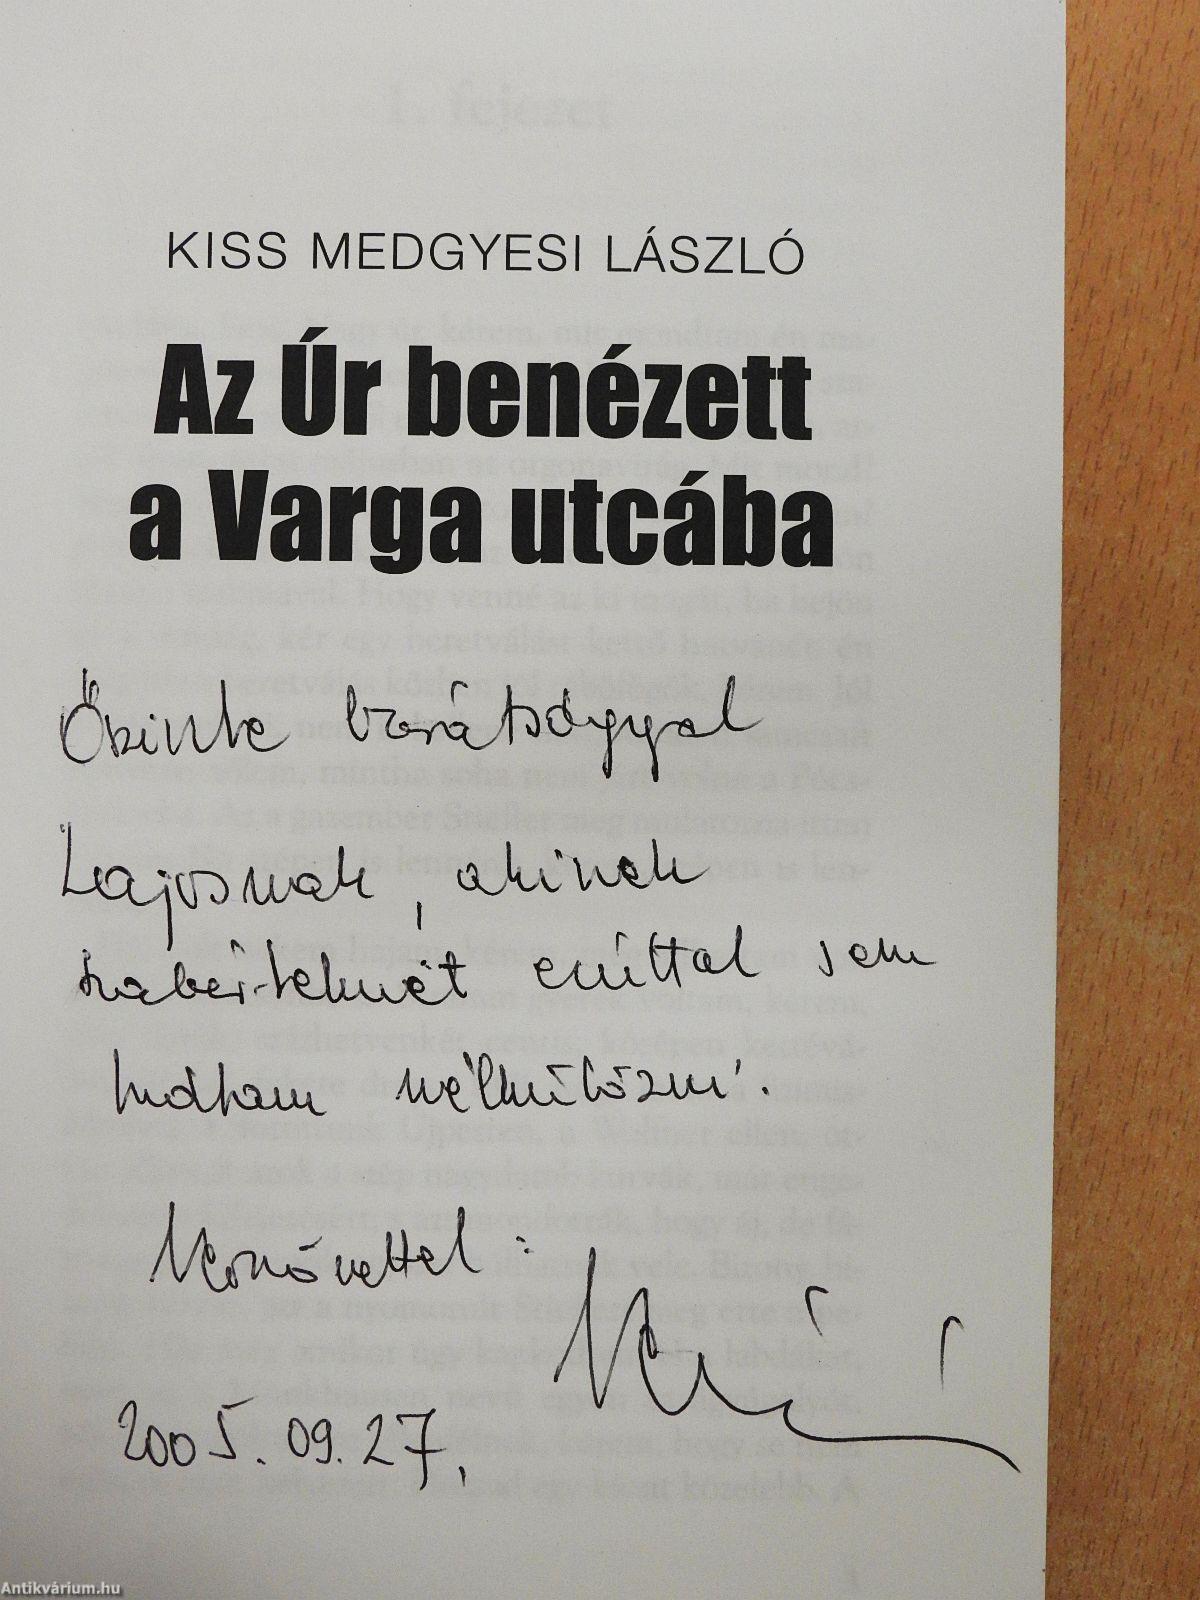 KISS MEDGYESI LÁSZLÓ
Az Úr benézett
a Varga utcába
Őszinte barátsággal
Lajosnak, akinek
szakértelmét ezúttal sem
tudtam nélkülözni.
Köszönettel:
2005.09.27.
Antikvárium.hu